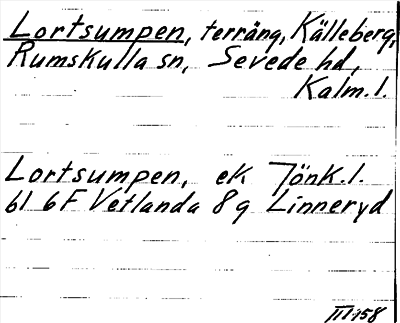 Lortsumpen, terräng, Källeberg,
Rumskulla sn, Sevede hd,
Kalm.l.
Lortsumpen, ek Jönk.l.
61 6F Vetlanda 8g Linneryd
III:158